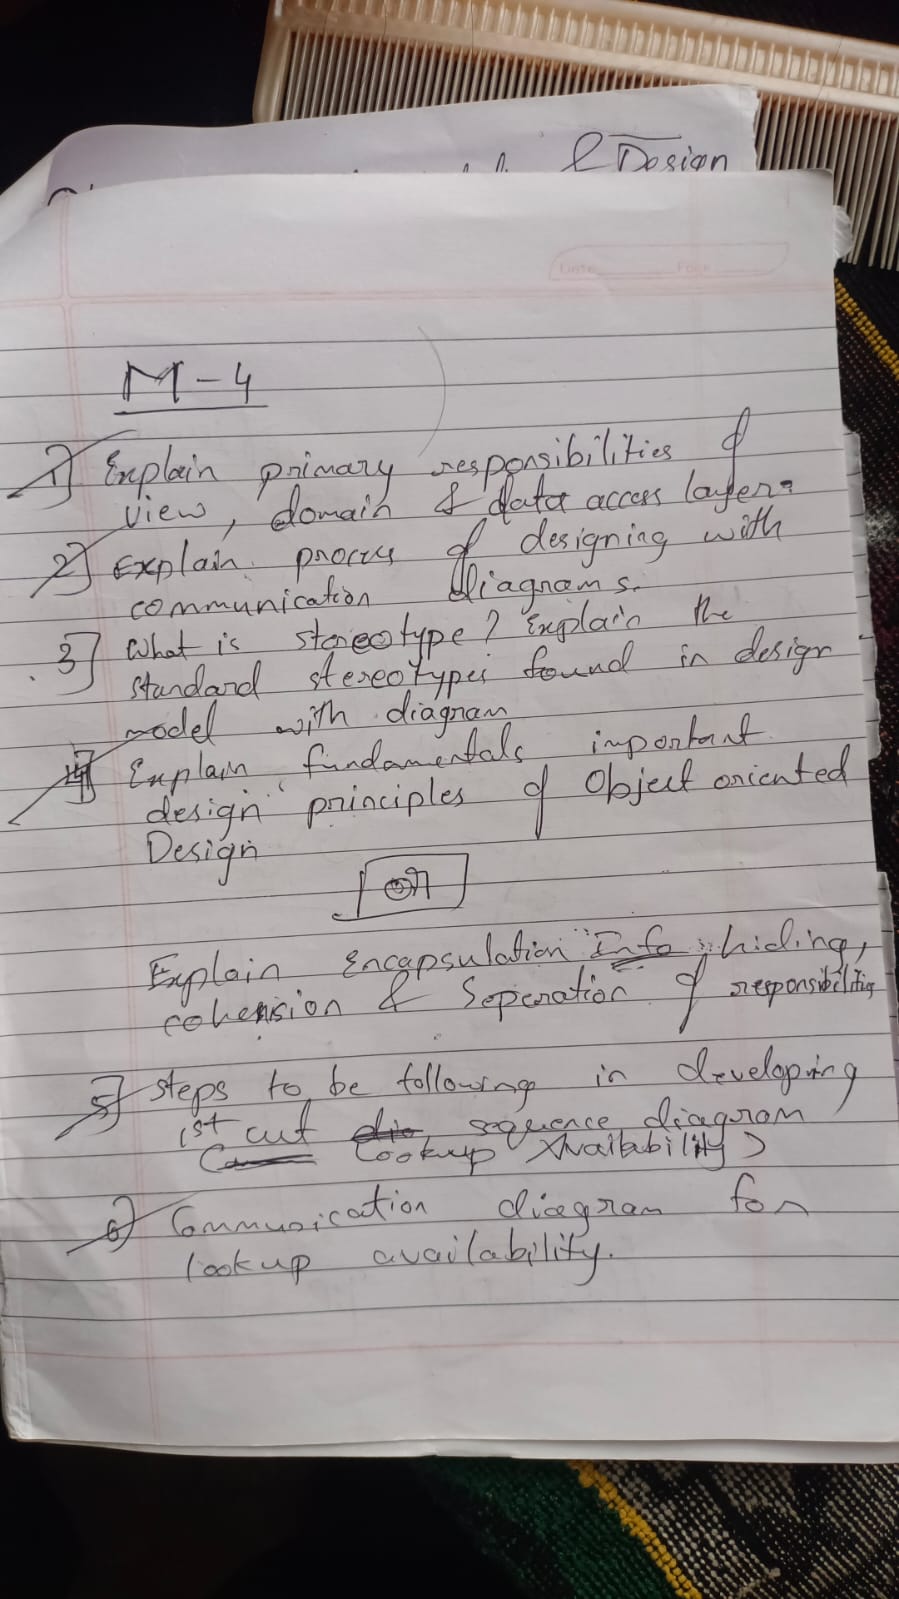 & Design
Date Page
M-4
1] Explain primary responsibilities of
view, domain & data access layer.
2] Explain process of designing with
communication diagrams.
3] What is stereotype? Explain the
standard stereotypes found in design
model with diagram
4] Explain fundamentals important
design principles of Object oriented
Design
OR
Explain encapsulation Info hiding,
cohension & Seperation of responsibilities
5] steps to be following in developing
1st cut sequence diagram
Lookup Availability)
6] Communication diagram for
lookup availability.